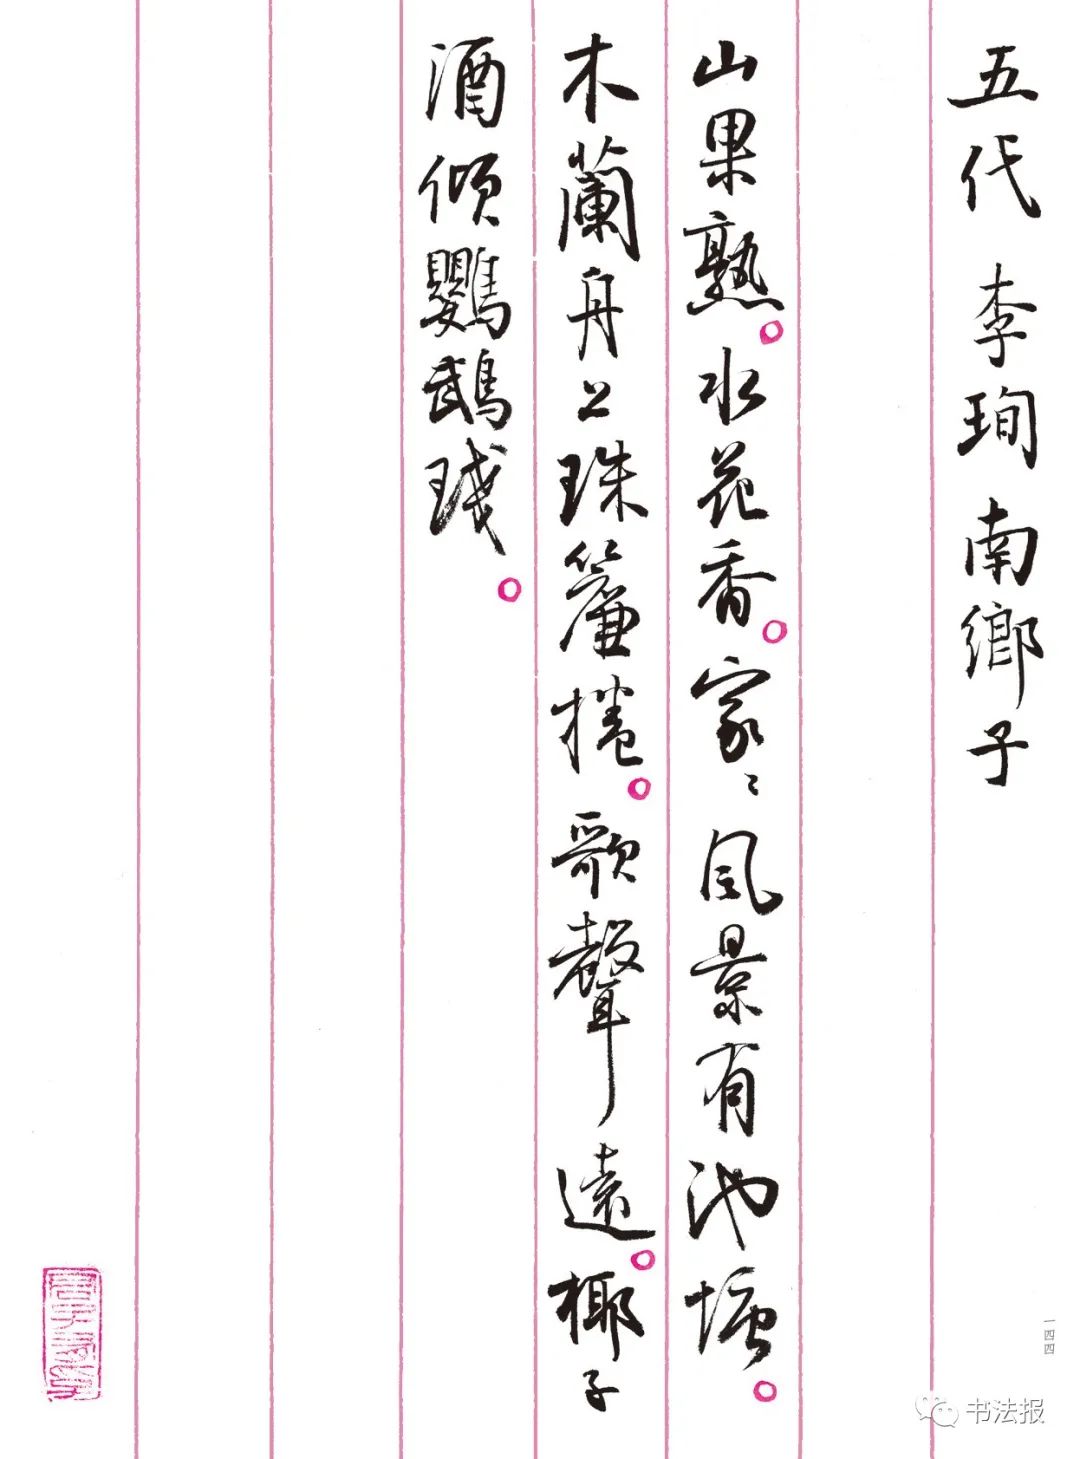 五代 李珣 南鄉子
山果熟。水花香。家〻風景有池塘。
木蘭舟上珠簾捲。歌聲遠。椰子
酒傾鸚鵡琖。
一四四
书法报